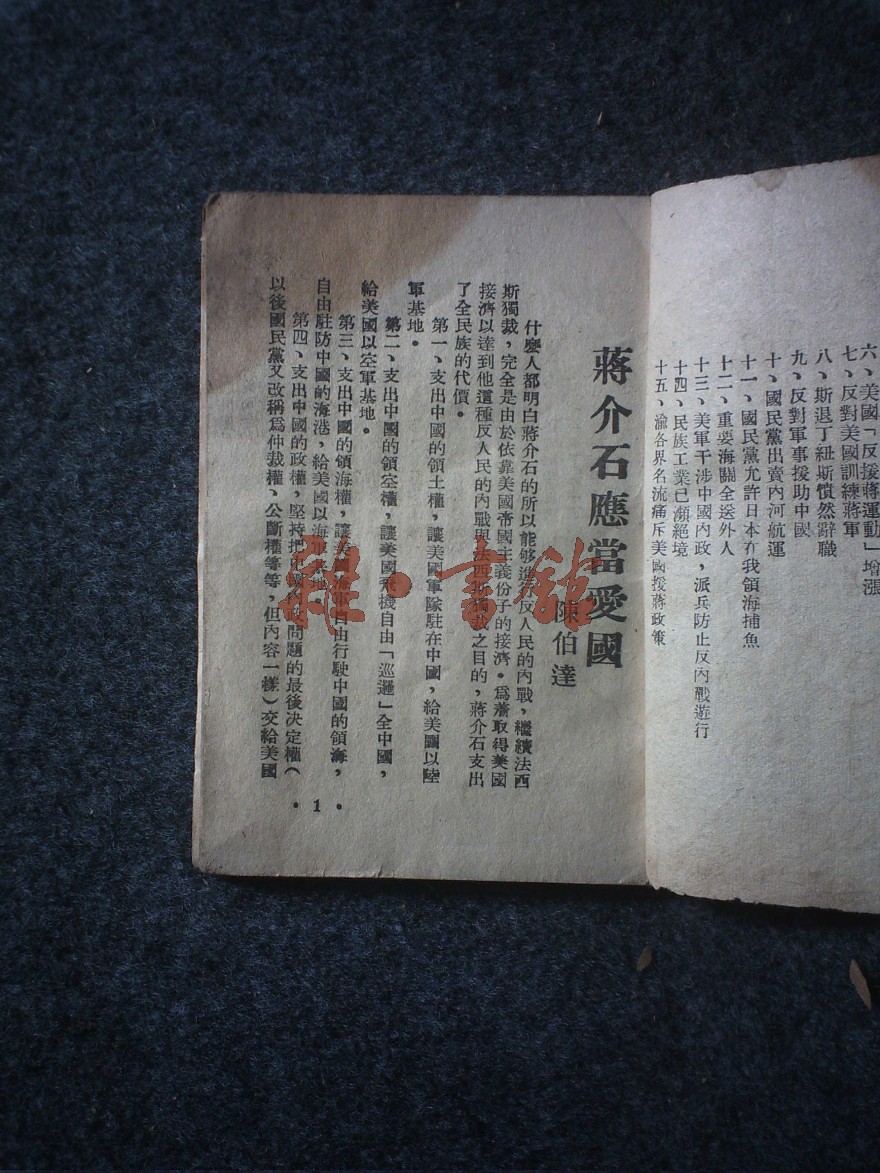 六、美國「反援蔣運動」增漲
七、反對美國訓練蔣軍
八、斯退丁紐斯憤然辭職
九、反對軍事援助中國
十、國民黨出賣內河航運
十一、國民黨允許日本在我領海捕魚
十二、重要海關全送外人
十三、美軍干涉中國內政，派兵防止反內戰遊行
十四、民族工業已瀕絕境
十五、渝各界名流痛斥美國援蔣政策
蔣介石應當愛國
陳伯達
什麼人都明白蔣介石的所以能够進行反人民的內戰，繼續法西
斯獨裁，完全是由於依靠美國帝國主義份子的接濟。爲着取得美國
接濟以達到他這種反人民的內戰與法西斯獨裁之目的，蔣介石支出
了全民族的代價。
第一、支出中國的領土權，讓美國軍隊駐在中國，給美國以陸
軍基地。
第二、支出中國的領空權，讓美國飛機自由「巡邏」全中國，
給美國以空軍基地。
第三、支出中國的領海權，讓美國海軍自由行駛中國的領海，
自由駐防中國的海港，給美國以海軍基地。
第四、支出中國的政權，堅持把中國內政問題的最後决定權（
以後國民黨又改稱爲仲裁權、公斷權等等，但內容一樣）交給美國
• 1 •
雜·書館